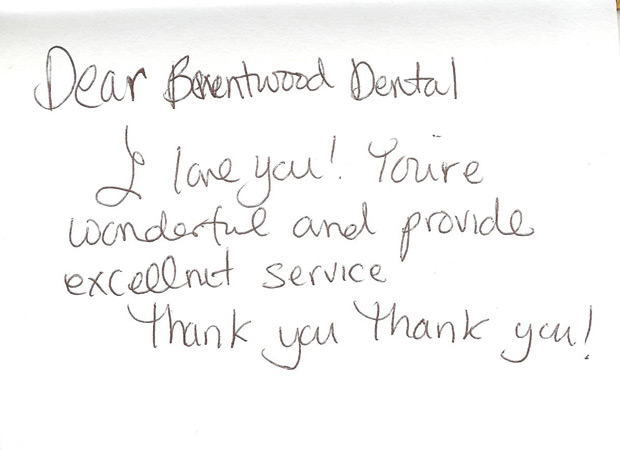 Dear Brentwood Dental
I love you! You're
wonderful and provide
excellnut service
Thank you Thank you!